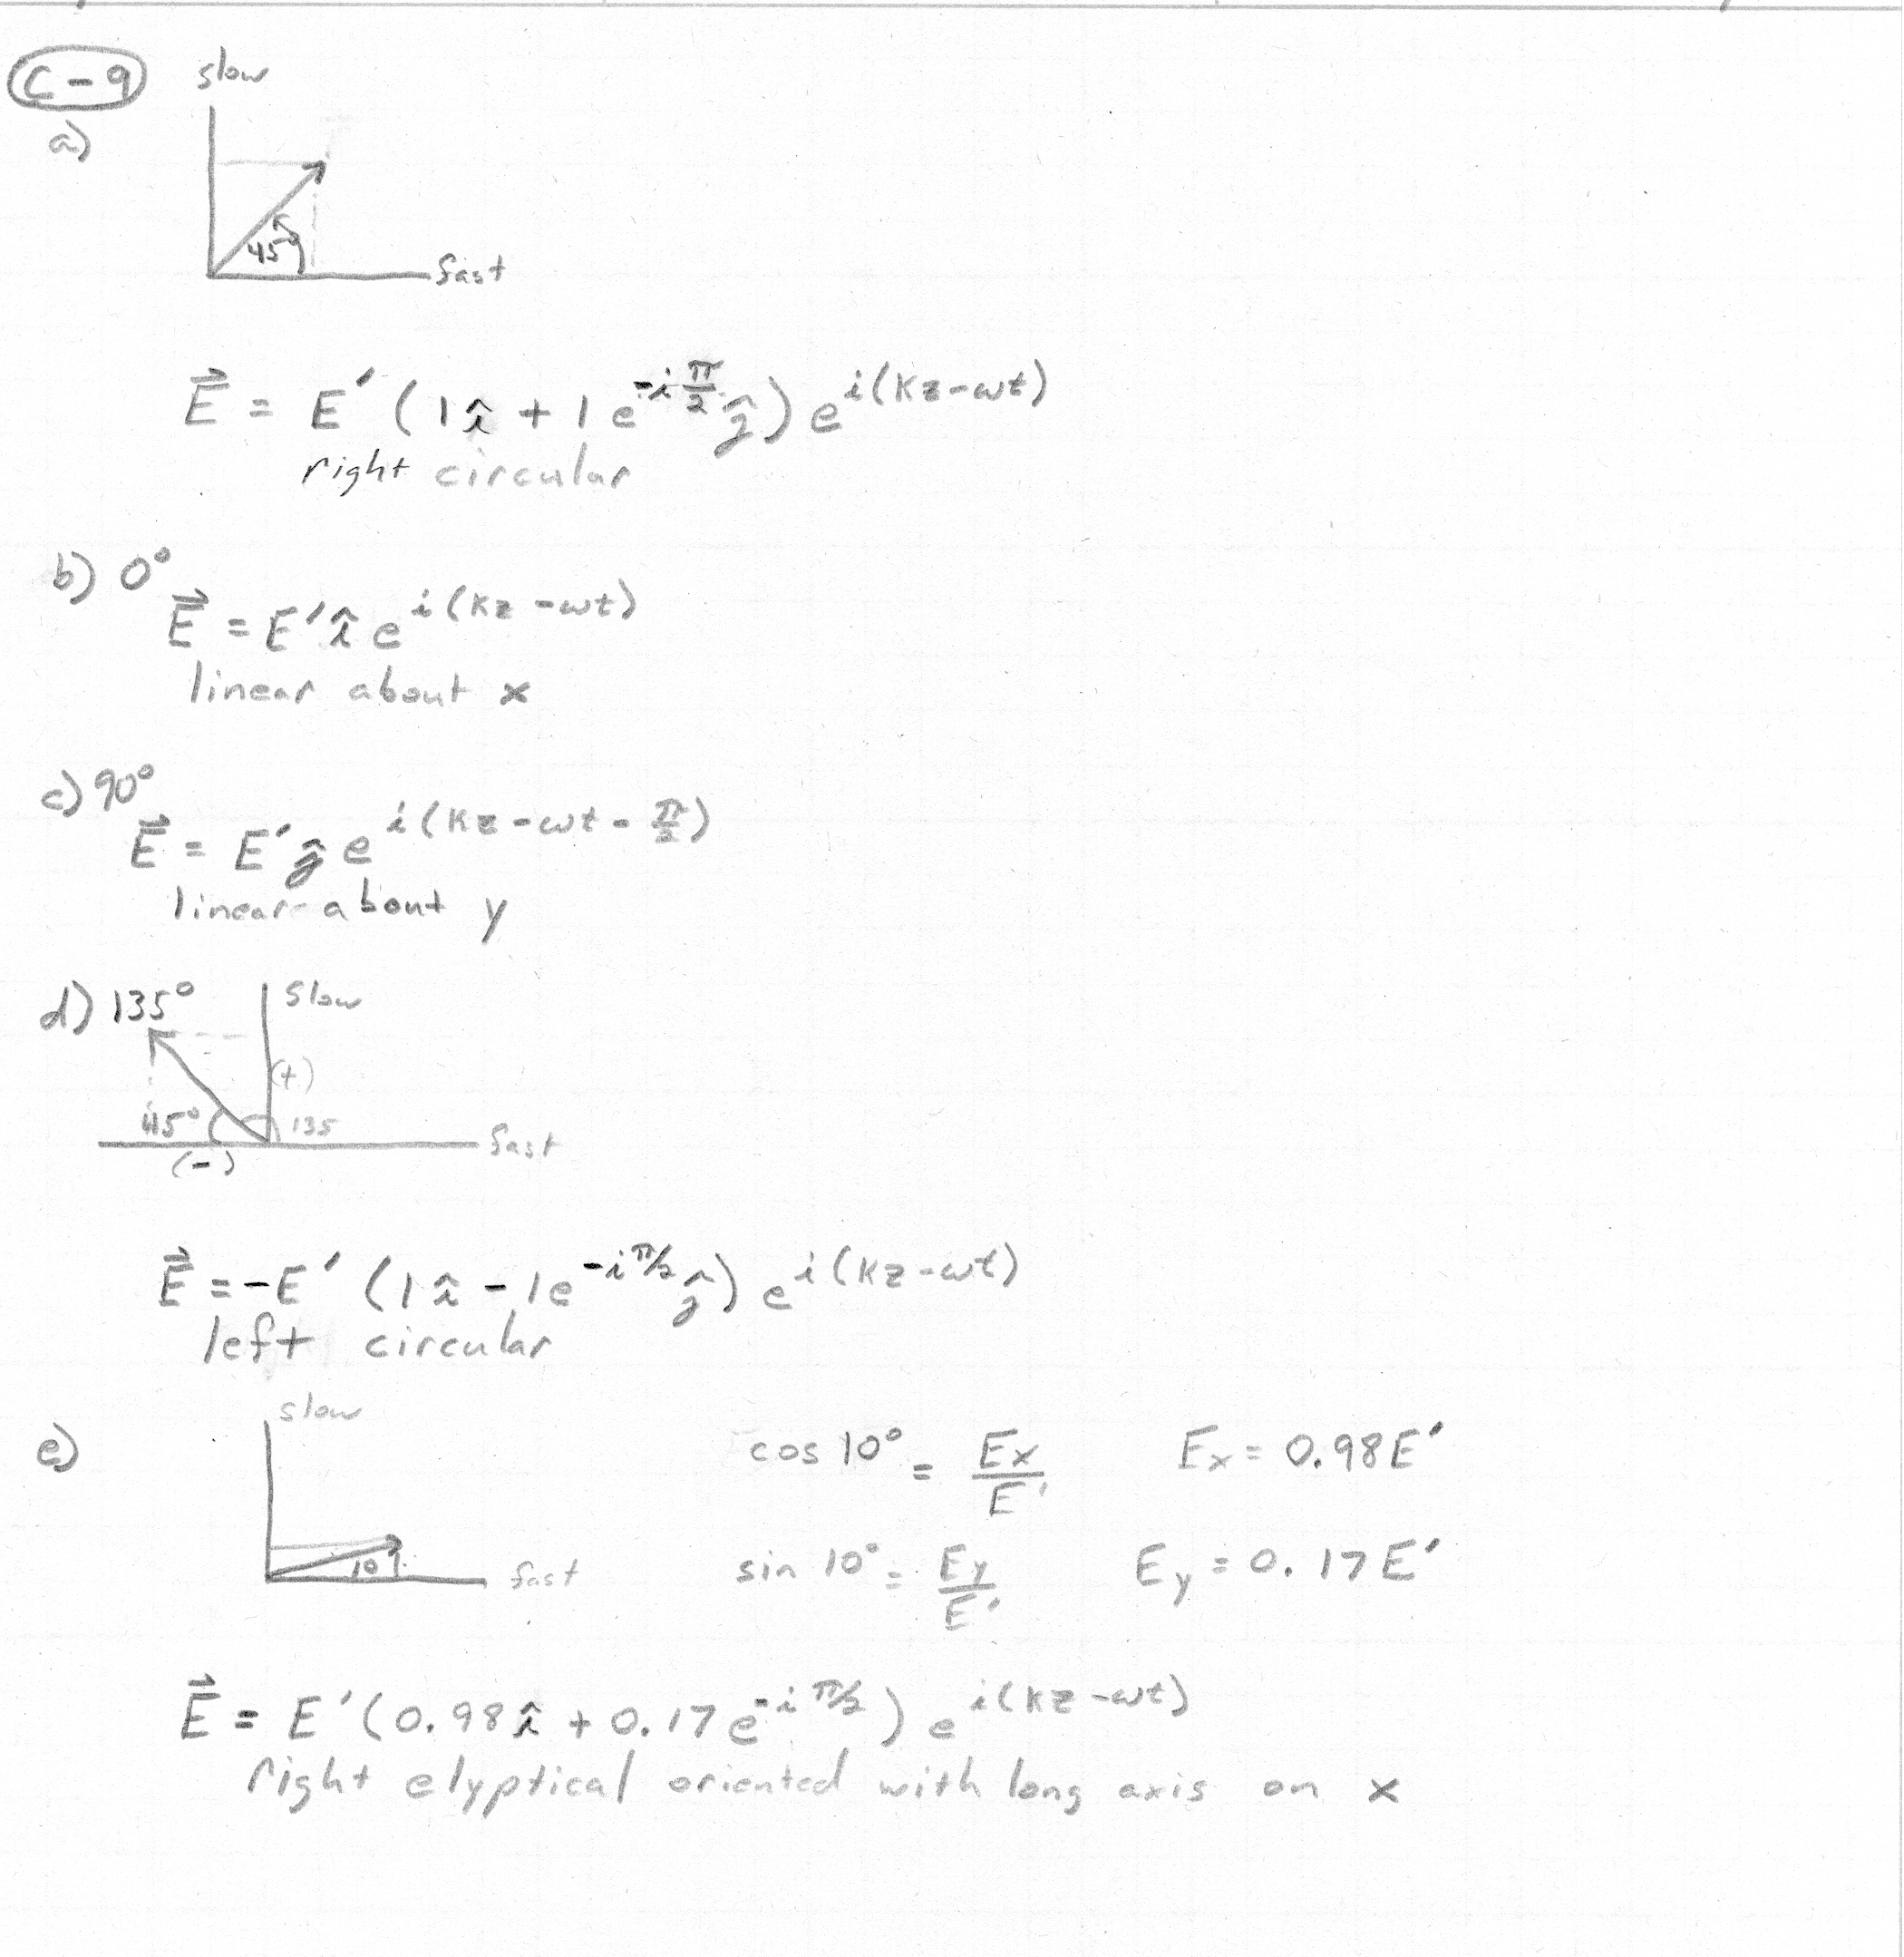 C-9
slow
a)
45
fast
E⃗ = E′ (1î + 1 e^{-i π/2} ĵ) e^{i(kz-ωt)}
right circular
b) 0°
E⃗ = E′ î e^{i(kz-ωt)}
linear about x
c) 90°
E⃗ = E′ ĵ e^{i(kz-ωt-π/2)}
linear about y
d) 135° slow
(+)
45° 135
fast
(-)
E⃗ = -E′ (1î - 1e^{-iπ/2} ĵ) e^{i(kz-ωt)}
left circular
slow
e) cos 10° = Ex/E′ Ex = 0.98E′
10 fast sin 10° = Ey/E′ Ey = 0.17E′
E⃗ = E′(0.98î + 0.17e^{-iπ/2}) e^{i(kz-ωt)}
right elyptical oriented with long axis on x